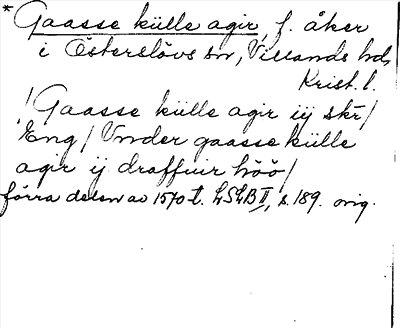 * Gaasse külle agir, f. åker
i Österslövs sn, Villands hd,
Krist. l.
/Gaasse külle agir iij skr/
Eng/Vnder gaasse külle
agir ij draffuir höö/
förra delen av 1570-t. LSLB II, s. 189. orig.